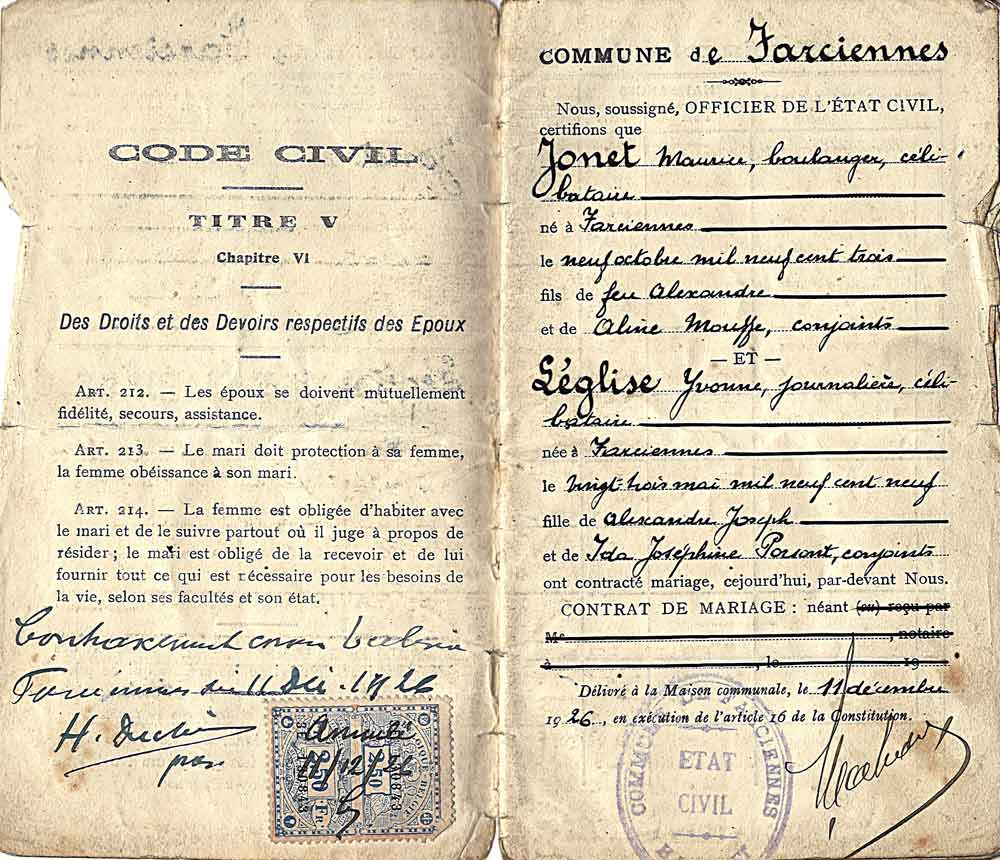 CODE CIVIL
TITRE V
Chapitre VI
Des Droits et des Devoirs respectifs des Epoux
ART. 212. — Les époux se doivent mutuellement
fidélité, secours, assistance.
ART. 213. — Le mari doit protection à sa femme,
la femme obéissance à son mari.
ART. 214. — La femme est obligée d'habiter avec
le mari et de le suivre partout où il juge à propos de
résider ; le mari est obligé de la recevoir et de lui
fournir tout ce qui est nécessaire pour les besoins de
la vie, selon ses facultés et son état.
Farciennes 11 Déc. 1926
H.
Annulé
17/12/26
COMMUNE de Farciennes
Nous, soussigné, OFFICIER DE L'ÉTAT CIVIL,
certifions que
Jonet Maurice, boulanger, céli-
bataire
né à Farciennes
le neuf octobre mil neuf cent trois
fils de feu Alexandre
et de Aline Mouffe, conjoints
— ET —
Léglise Yvonne, journalière, céli-
bataire
née à Farciennes
le vingt-trois mai mil neuf cent neuf
fille de Alexandre Joseph
et de Ida Joséphine Possont, conjoints
ont contracté mariage, cejourd'hui, par-devant Nous.
CONTRAT DE MARIAGE : néant (ou) reçu par
Me , notaire
à , le 19
Délivré à la Maison communale, le 11 décembre
1926, en exécution de l'article 16 de la Constitution.
COMMUNE DE FARCIENNES
ETAT
CIVIL